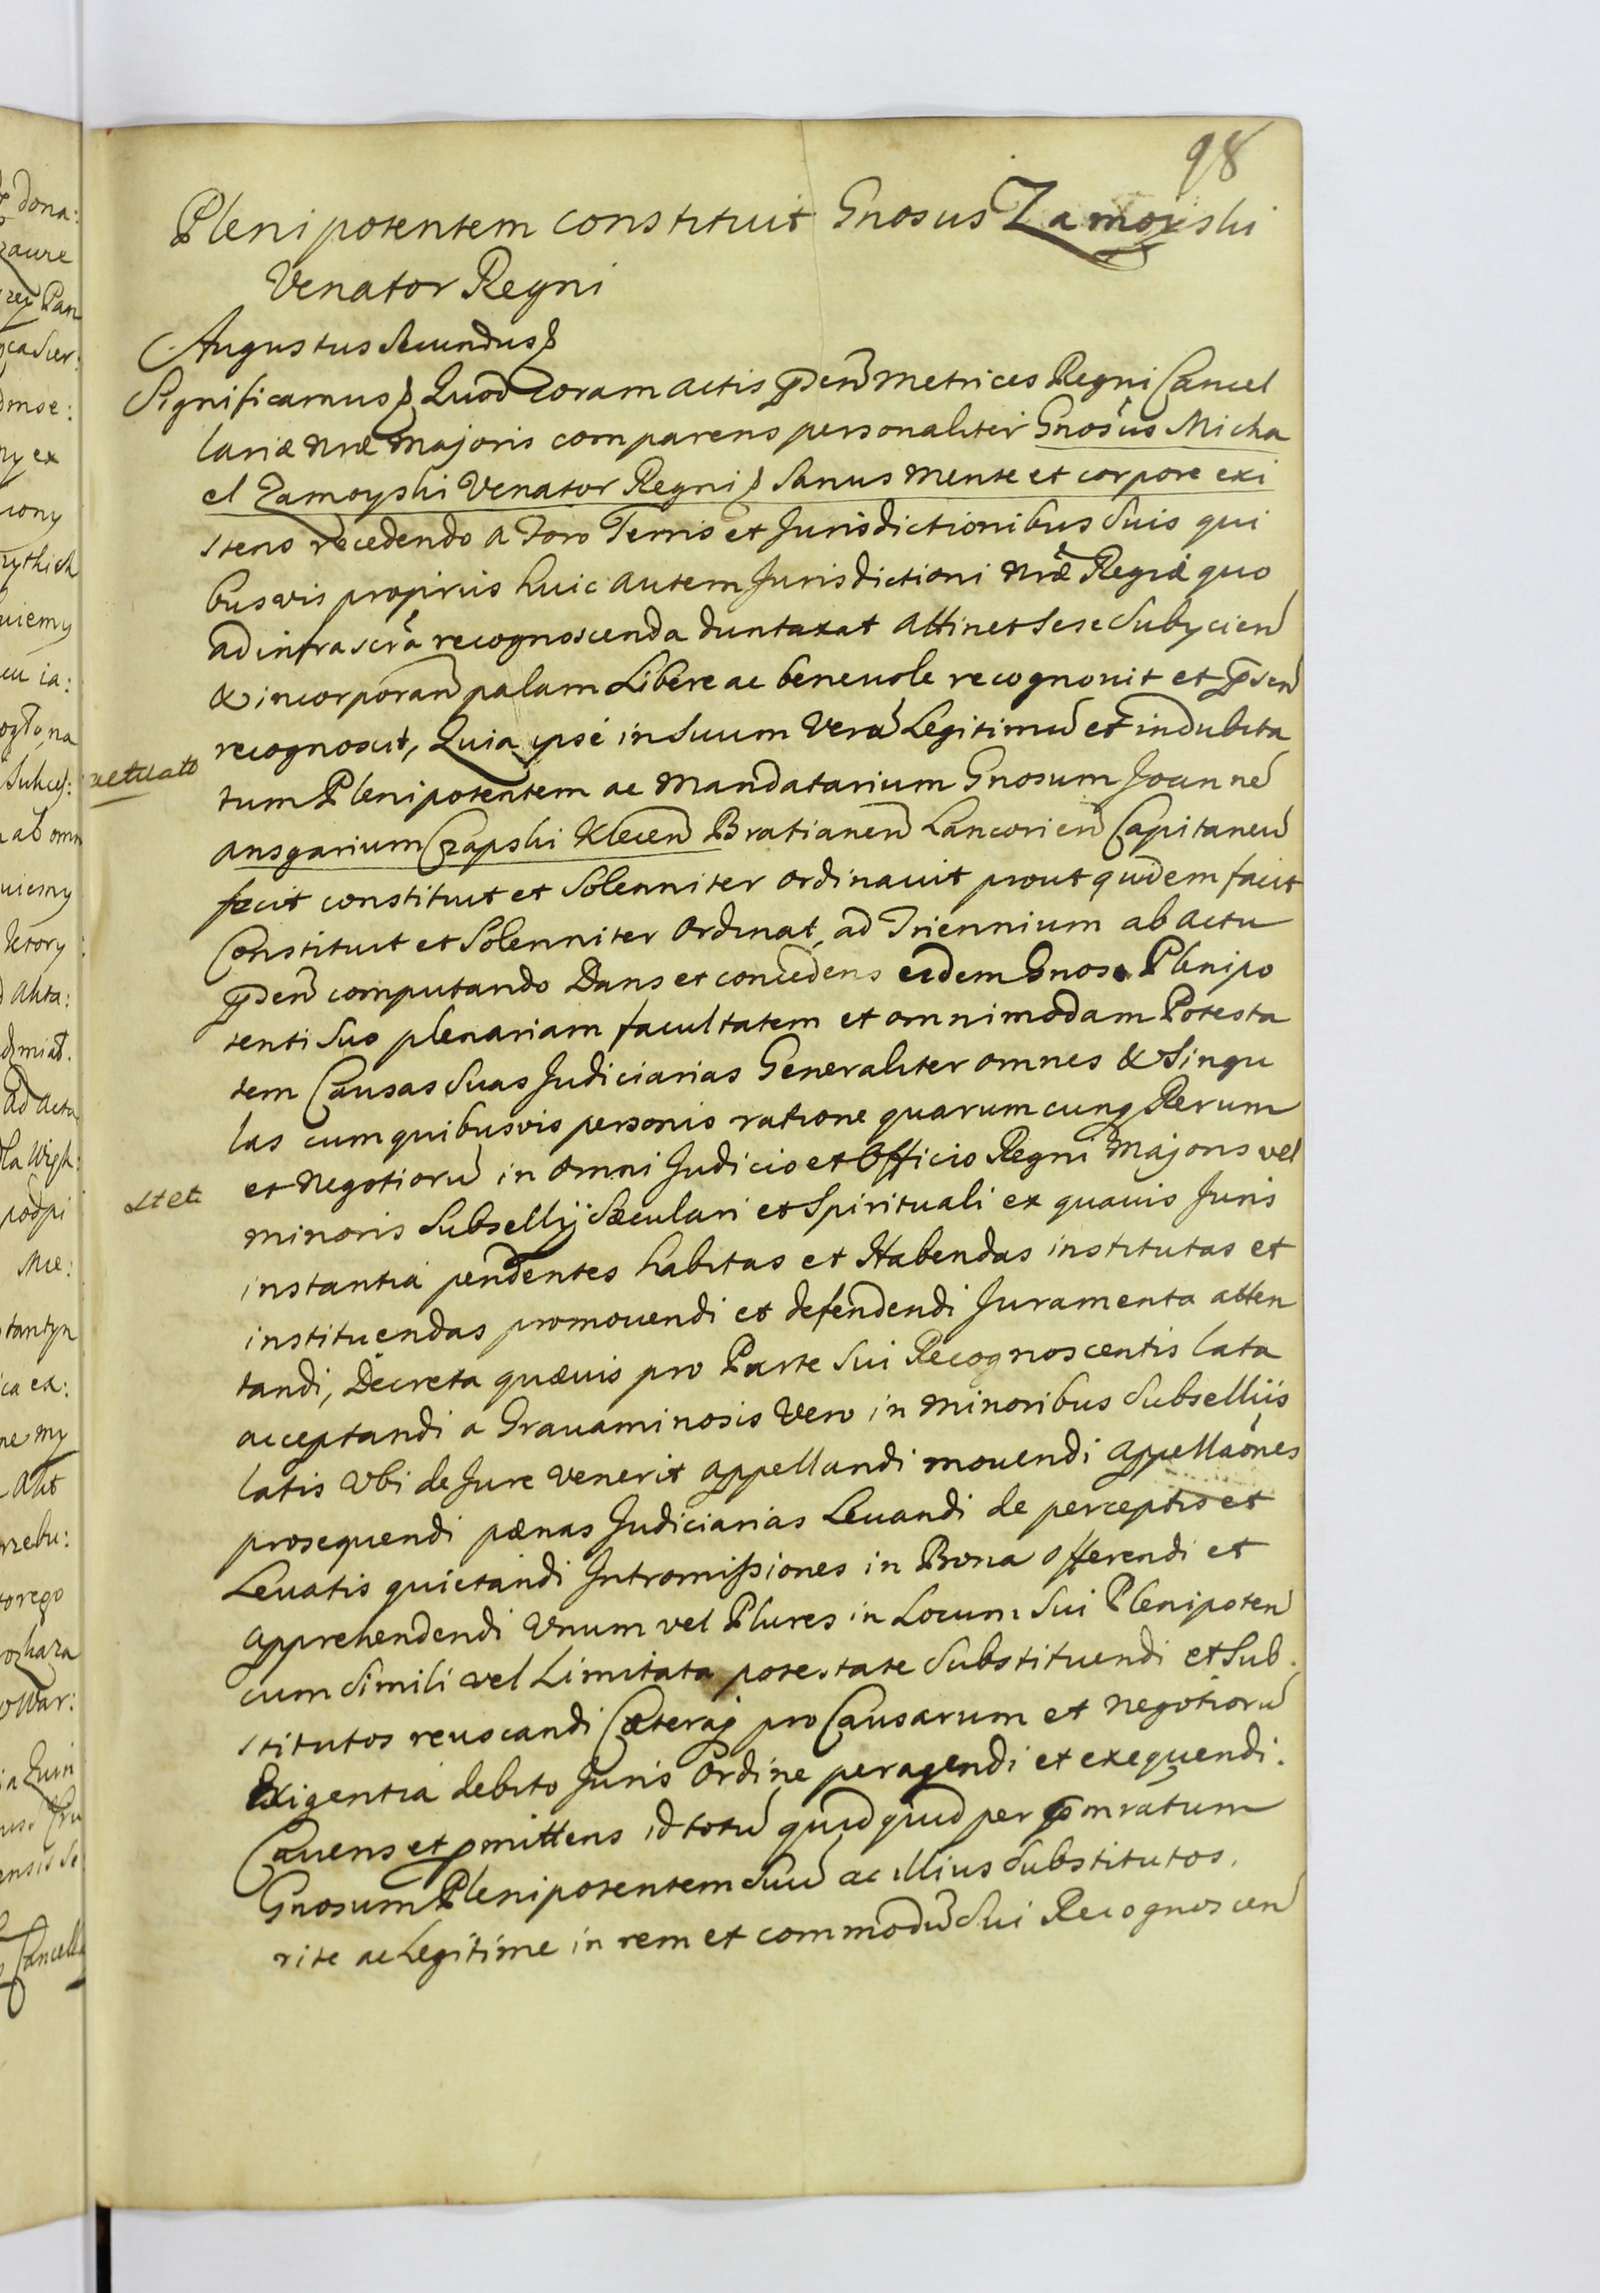 98
Plenipotentem constituit Gnosus Zamoyski
Venator Regni
Augustus Secundus
Significamus Quod coram actis pńden̄ Metrices Regni Cancel
lariæ Nræ Majoris comparens personaliter Gnosus Micha
el Zamoyski Venator Regni Sanus mente et corpore exi
stens recedendo a Foro Terris et Jurisdictionibus Suis qui
busvis proprijs huic autem Jurisdictioni Nræ Regiæ quo
ad infrascrã recognoscenda duntaxat attinet sese Subycien̄
& incorporan̄ palam Libere ac beneuole recognouit et pńsen̄
recognoscit, Quia ipse in Suum Verũ Legitimũ et indubita
tum Plenipotentem ac Mandatarium Gnosum Joannẽ
Ansgarium Czapski Klecen̄ Bratianen̄ Lancorien̄ Capitaneũ
fecit constituit et Solenniter ordinauit prout quidem facit
Constituit et Solenniter Ordinat, ad Triennium ab actu
pńden̄ computando Dans et concedens eidem Gnoso Plenipo
tenti Suo plenariam facultatem et omnimodam Potesta
tem Causas Suas Judiciarias Generaliter omnes & Singu
las cum quibusvis personis ratione quarumcunq Rerum
et Negotiorũ in omni Judicio et Officio Regni Majoris vel
minoris Subsellij Sæculari et Spirituali ex quauis Juris
instantia pendentes habitas et Habendas institutas et
instituendas promouendi et defendendi Juramenta atten
tandi, Decreta quæuis pro Parte Sui Recognoscentis lata
acceptandi a Grauaminosis Vero in minoribus Subsellijs
latis Vbi de Jure Venerit appellandi mouendi appellaõnes
prosequendi pænas Judiciarias Leuandi de perceptis et
Leuatis quietandi Intromissiones in Bona offerendi et
apprehendendi Vnum vel Plures in Locum Sui Plenipoten̄
cum Simili vel Limitata potestate Substituendi et Sub
stitutos reuocandi Cæteraq pro Causarum et Negotiorũ
Exigentia debito Juris Ordine peragendi et exequendi.
Cauens et pmittens id totũ quidquid per
Gnosum Plenipotentem Suũ ac illius Substitutos,
rite ac Legitime in rem et commodũ Sui Recognoscen̄